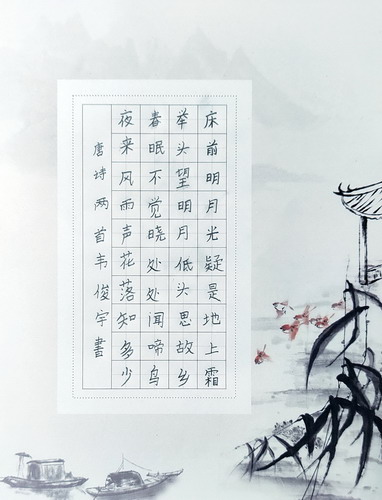 床前明月光疑是地上霜
举头望明月低头思故乡
春眠不觉晓处处闻啼鸟
夜来风雨声花落知多少
唐诗两首韦俊宇書